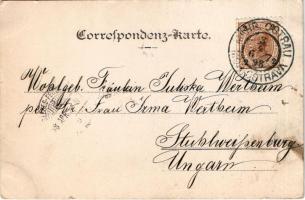 Correspondenz-Karte.
MÄHR. OSTRAU
OSTRAVA
Wohlgeb. Fräulein Juliska Wertheim
per Adr. Frau Irma Wertheim
Stuhlweissenburg
Ungarn